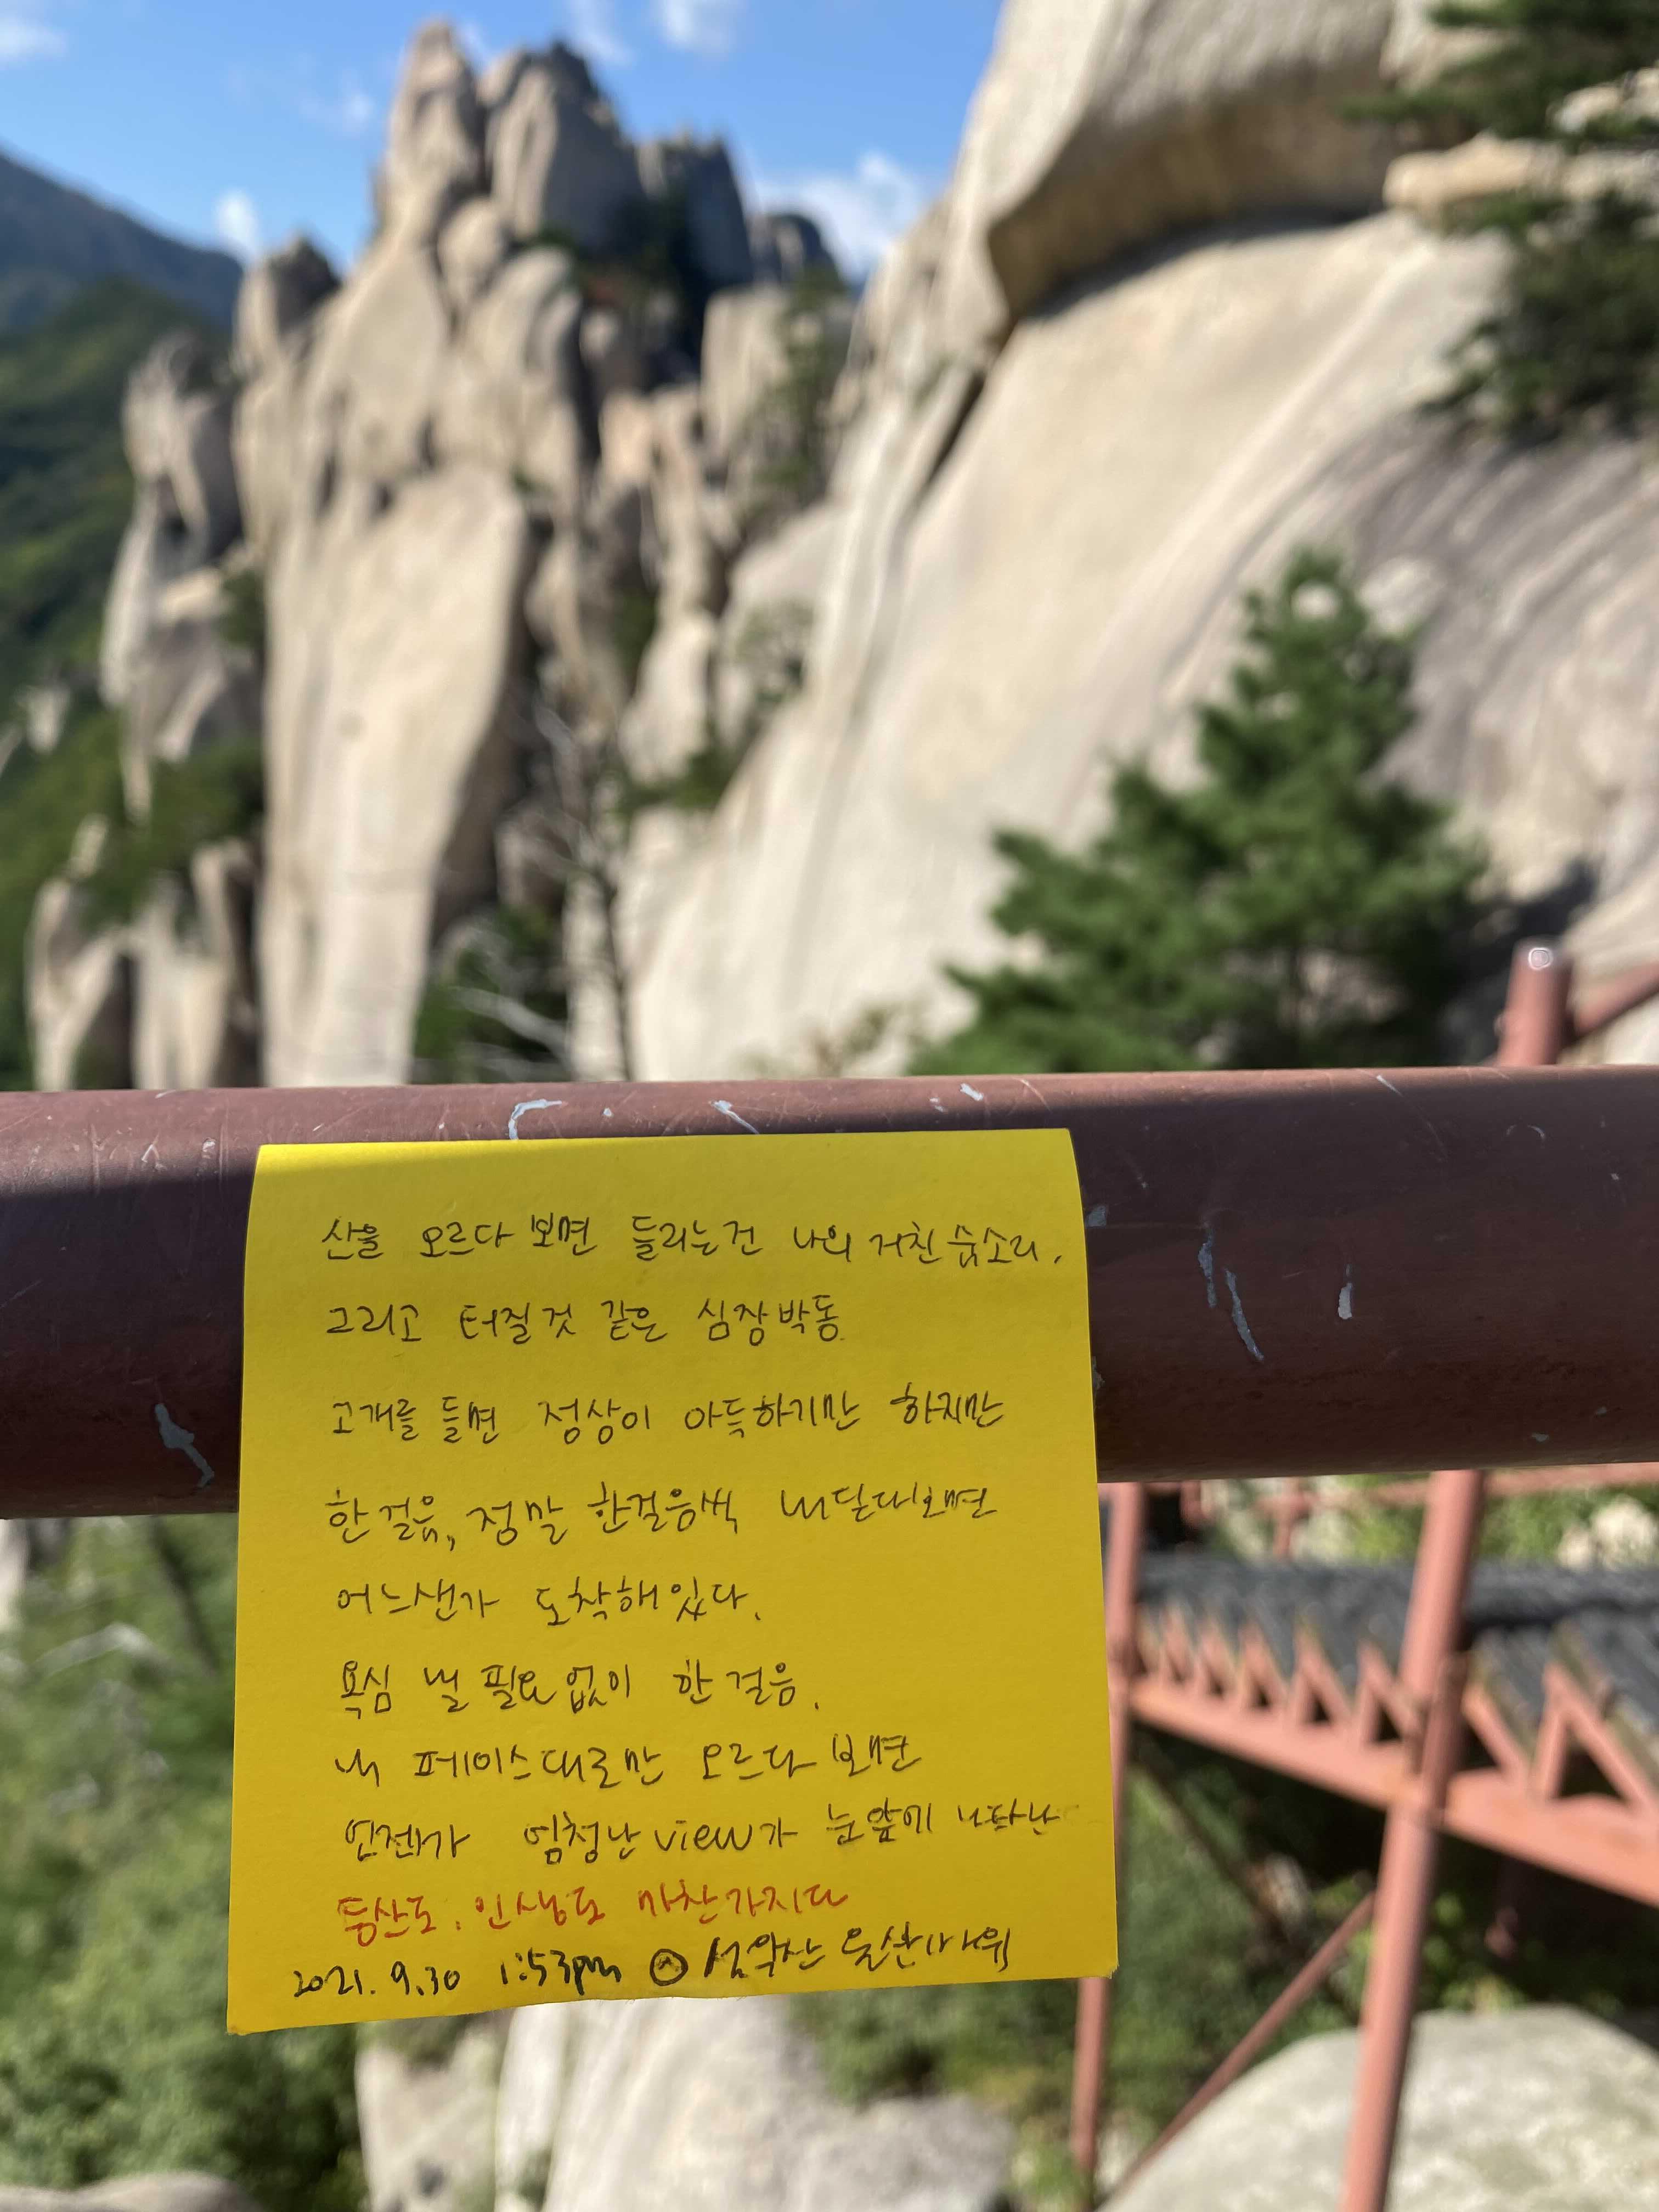 산을 오르다 보면 들리는건 나의 거친 숨소리.
그리고 터질것 같은 심장박동
고개를 들면 정상이 아득하기만 하지만
한 걸음, 정말 한걸음씩 내딛다보면
어느샌가 도착해 있다.
욕심 낼 필요없이 한 걸음.
내 페이스대로만 오르다 보면
언젠가 엄청난 view가 눈앞에 나타난
등산도. 인생도 마찬가지다
2021. 9.30 1:53pm @ 설악산 울산바위